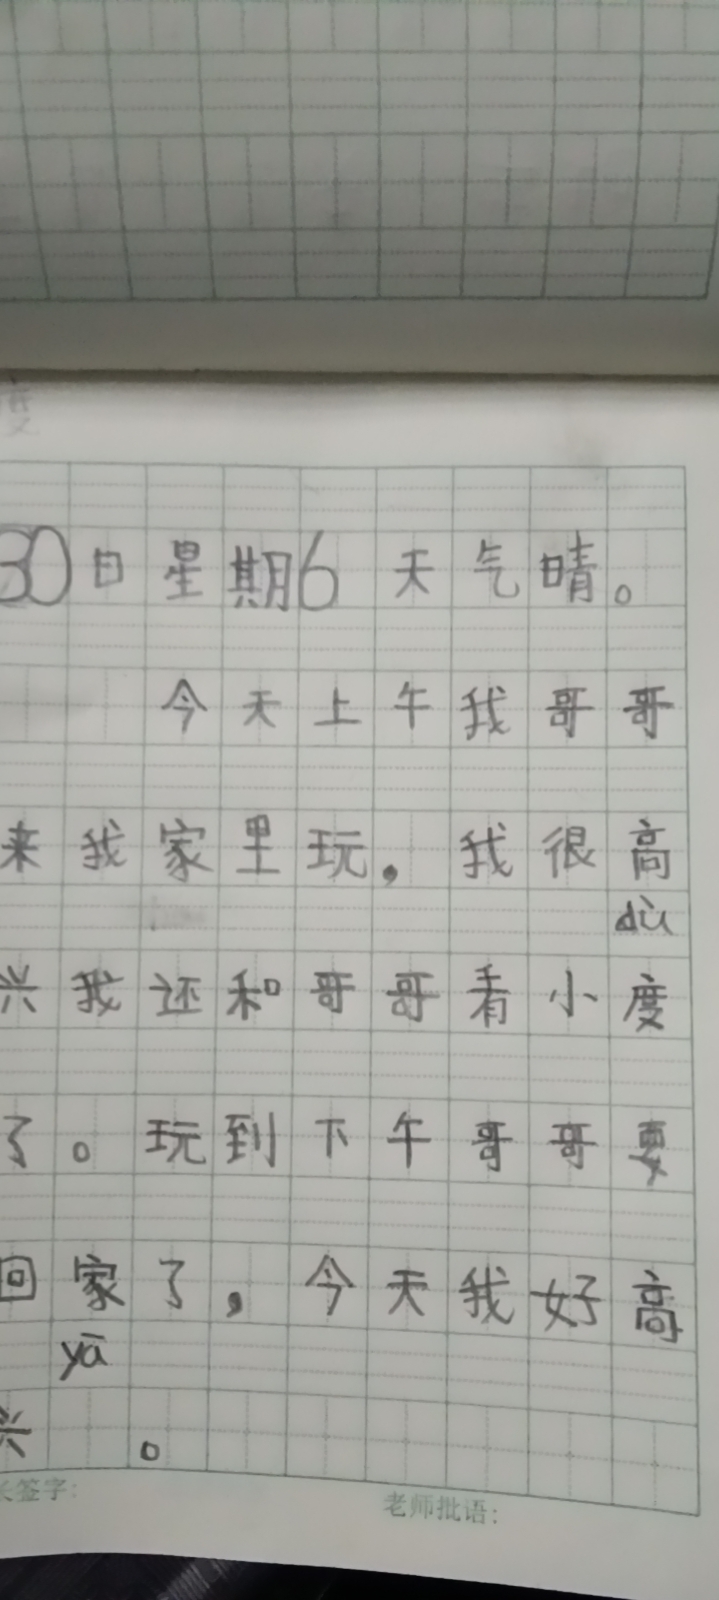 30日星期6 天气晴。
今天上午我哥哥
来我家里玩，我很高
dù
兴我还和哥哥看小度
了。玩到下午哥哥要
回家了，今天我好高
yā
兴 。
长签字： 老师批语：